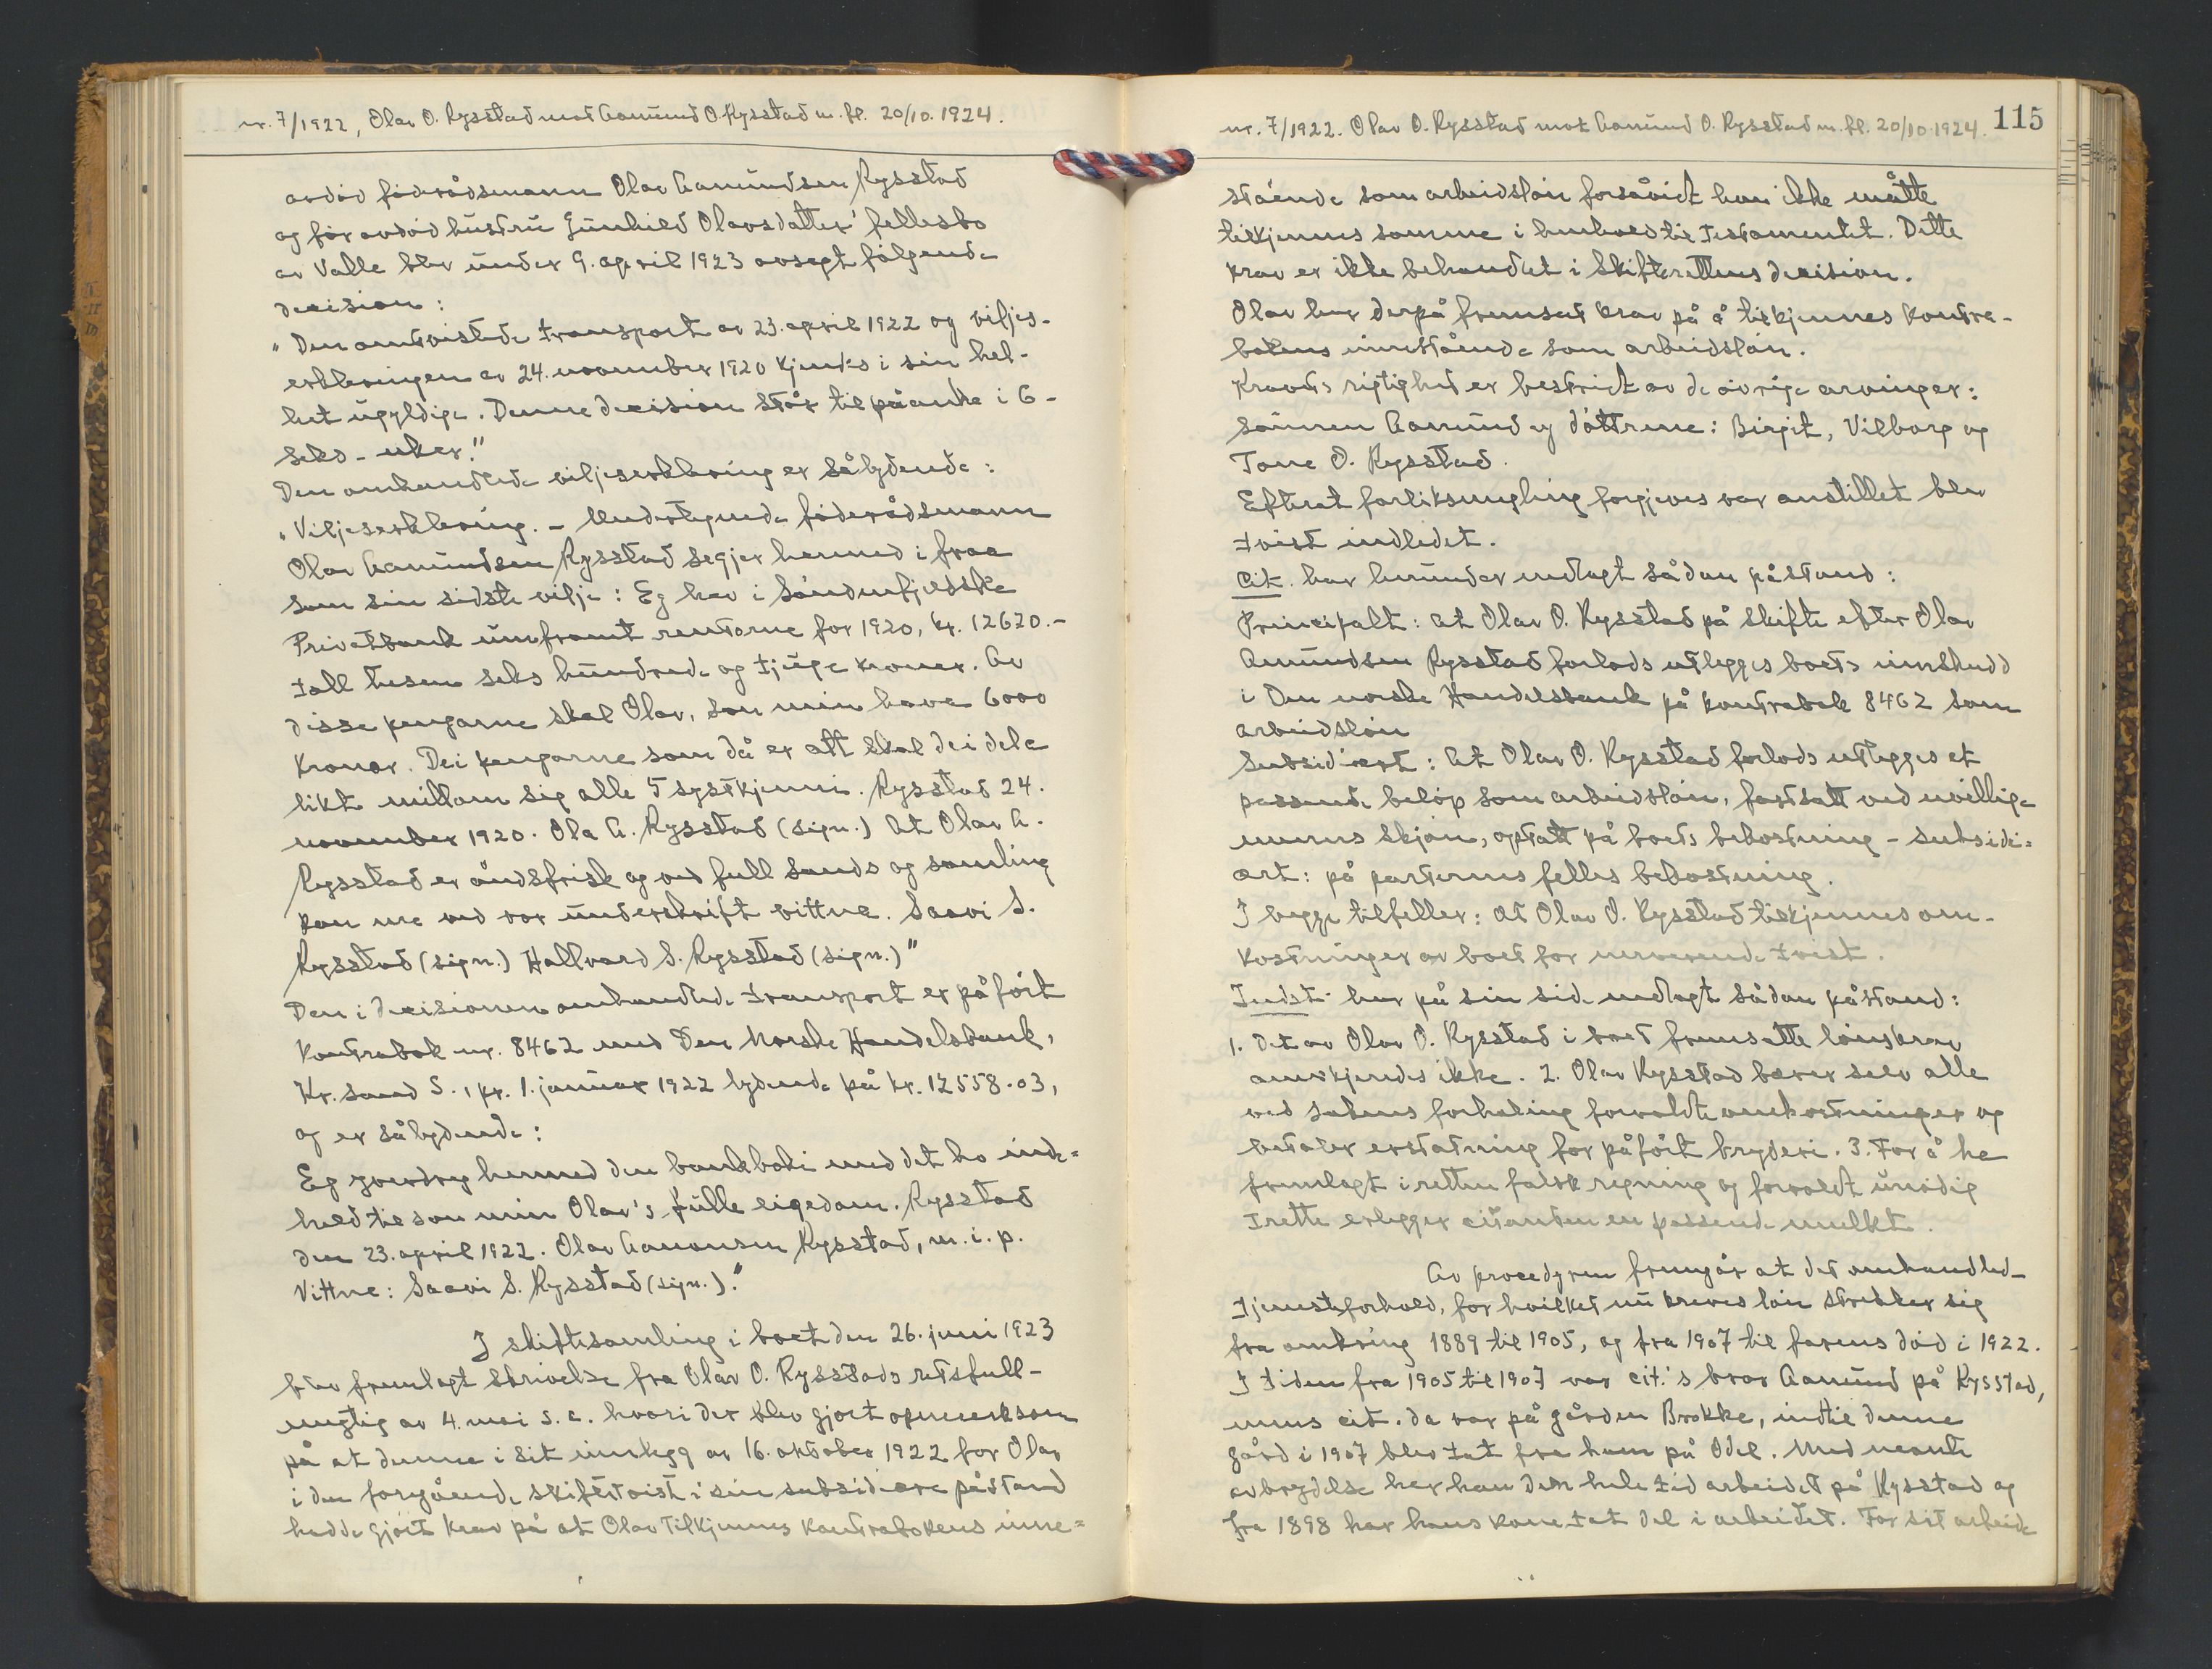 nr. 7/1922, Olav O. Rysstad mot Aamund O. Rysstad m. fl. 20/10. 1924.
avdød føderådsmann Olav Aamundsen Rysstad
og før avdød hustru Gunhild Olavsdatter' fellesbo
av Valle blev under 9. april 1923 avsagt følgende
decision:
"Den omtvistede transport av 23. april 1922 og viljes-
erklæringen av 24. november 1920 kjendes i sin hel-
het ugyldige. Denne decision står til påanke i 6 -
seks - uker."
Den omhandlede viljeserklæring er sålydende:
"Viljeserklæring. - Undertegnede føderådsmann
Olav Aamundsen Rysstad segjer hermed i fraa
som sin sidste vilje: Eg hev i Søndenfjeldske
Privatbank umframt rentorne for 1920, kr. 12620.-
tolv tusen seks hundrede og tjuge kroner. Av
disse pengarne skal Olav, son min have 6000
kronor. Dei pengarne som då er att skal dei dele
likt millom sig alle 5 systkjeni. Rysstad 24.
november 1920. Ola A. Rysstad (sign.) At Olav A.
Rysstad er åndsfrisk og ved full sands og samling
kan me ved vor underskrift vittne. Saavi S.
Rysstad (sign.) Hallvard S. Rysstad (sign.)"
Den i decisionen omhandlede transport er påført
Kontrabok nr. 8462 med Den Norske Handelsbank,
Kr.sand S., pr. 1. januar 1922 lydende på kr. 12558.03,
og er sålydende:
Eg yverdreg hermed den bankboki med det ho inde=
held til son min Olav's fulle eigedom. Rysstad
den 23. april 1922. Olav Aamonsen Rysstad, m. i. p.
Vittne: Saavi S. Rysstad (sign.)."
I skiftesamling i boet den 26. juni 1923
blev fremlagt skrivelse fra Olav O. Rysstads retsfull-
megtig av 4. mai s. a. hvori der blev gjort opmerksom
på at denne i sit innlegg av 16. oktober 1922 for Olav
i den foregående skiftetvist i sin subsidiære påstand
hadde gjort krav på at Olav tilkjennes kontrabokens inne=
nr. 7/1922. Olav O. Rysstad mot Aamund O. Rysstad m. fl. 20/10 1924. 115
stående som arbeidsløn forsåvidt han ikke måtte
tilkjennes samme i henhold til testamentet. Dette
krav er ikke behandlet i Skifterettens decision.
Olav har derpå fremsat krav på å tilkjennes kontra-
bokens innestående som arbeidsløn.
Kravets rigtighet er bestridt av de øvrige arvinger:
sønnen Aamund og døttrene: Birgit, Vilborg og
Tone O. Rysstad.
Efterat forliksmegling forgjeves var anstillet blev
tvist indledet.
Cit. har herunder nedlagt sådan påstand:
Principalt: At Olav O. Rysstad på skifte efter Olav
Amundsen Rysstad forlods utlegges boets innskudd
i Den norske Handelsbank på kontrabok 8462 som
arbeidsløn
Subsidiært: At Olav O. Rysstad forlods utlegges et
passende beløp som arbeidsløn, fastsatt ved uvillige
menns skjøn, optatt på boets bekostning - subsidi=
ært: på parternes felles bekostning.
I begge tilfeller: At Olav O. Rysstad tilkjennes om-
kostninger av boet for nerværende tvist.
Indst. har på sin side nedlagt sådan påstand:
1. Det av Olav O. Rysstad i boet fremsatte lønskrav
anerkjendes ikke. 2. Olav Rysstad bærer selv alle
ved sakens forhaling forvoldte omkostninger og
betaler erstatning for påført bryderi. 3. For å ha
fremlagt i retten falsk regning og forvoldt unødig
trette erlegger citanten en passende mulkt.
Av procedyren fremgår at det omhandlede
tjenesteforhold, for hvilket nu kreves løn strekker sig
fra omkring 1889 til 1905, og fra 1907 til farens død i 1922.
I tiden fra 1905 til 1907 var cit.'s bror Aamund på Rysstad,
mens cit. da var på gården Brokke, indtil denne
gård i 1907 blev tat fra ham på Odel. Med nevnte
avbrydelse har han den hele tid arbeidet på Rysstad og
fra 1898 har hans kone tat del i arbeidet. For sit arbeide